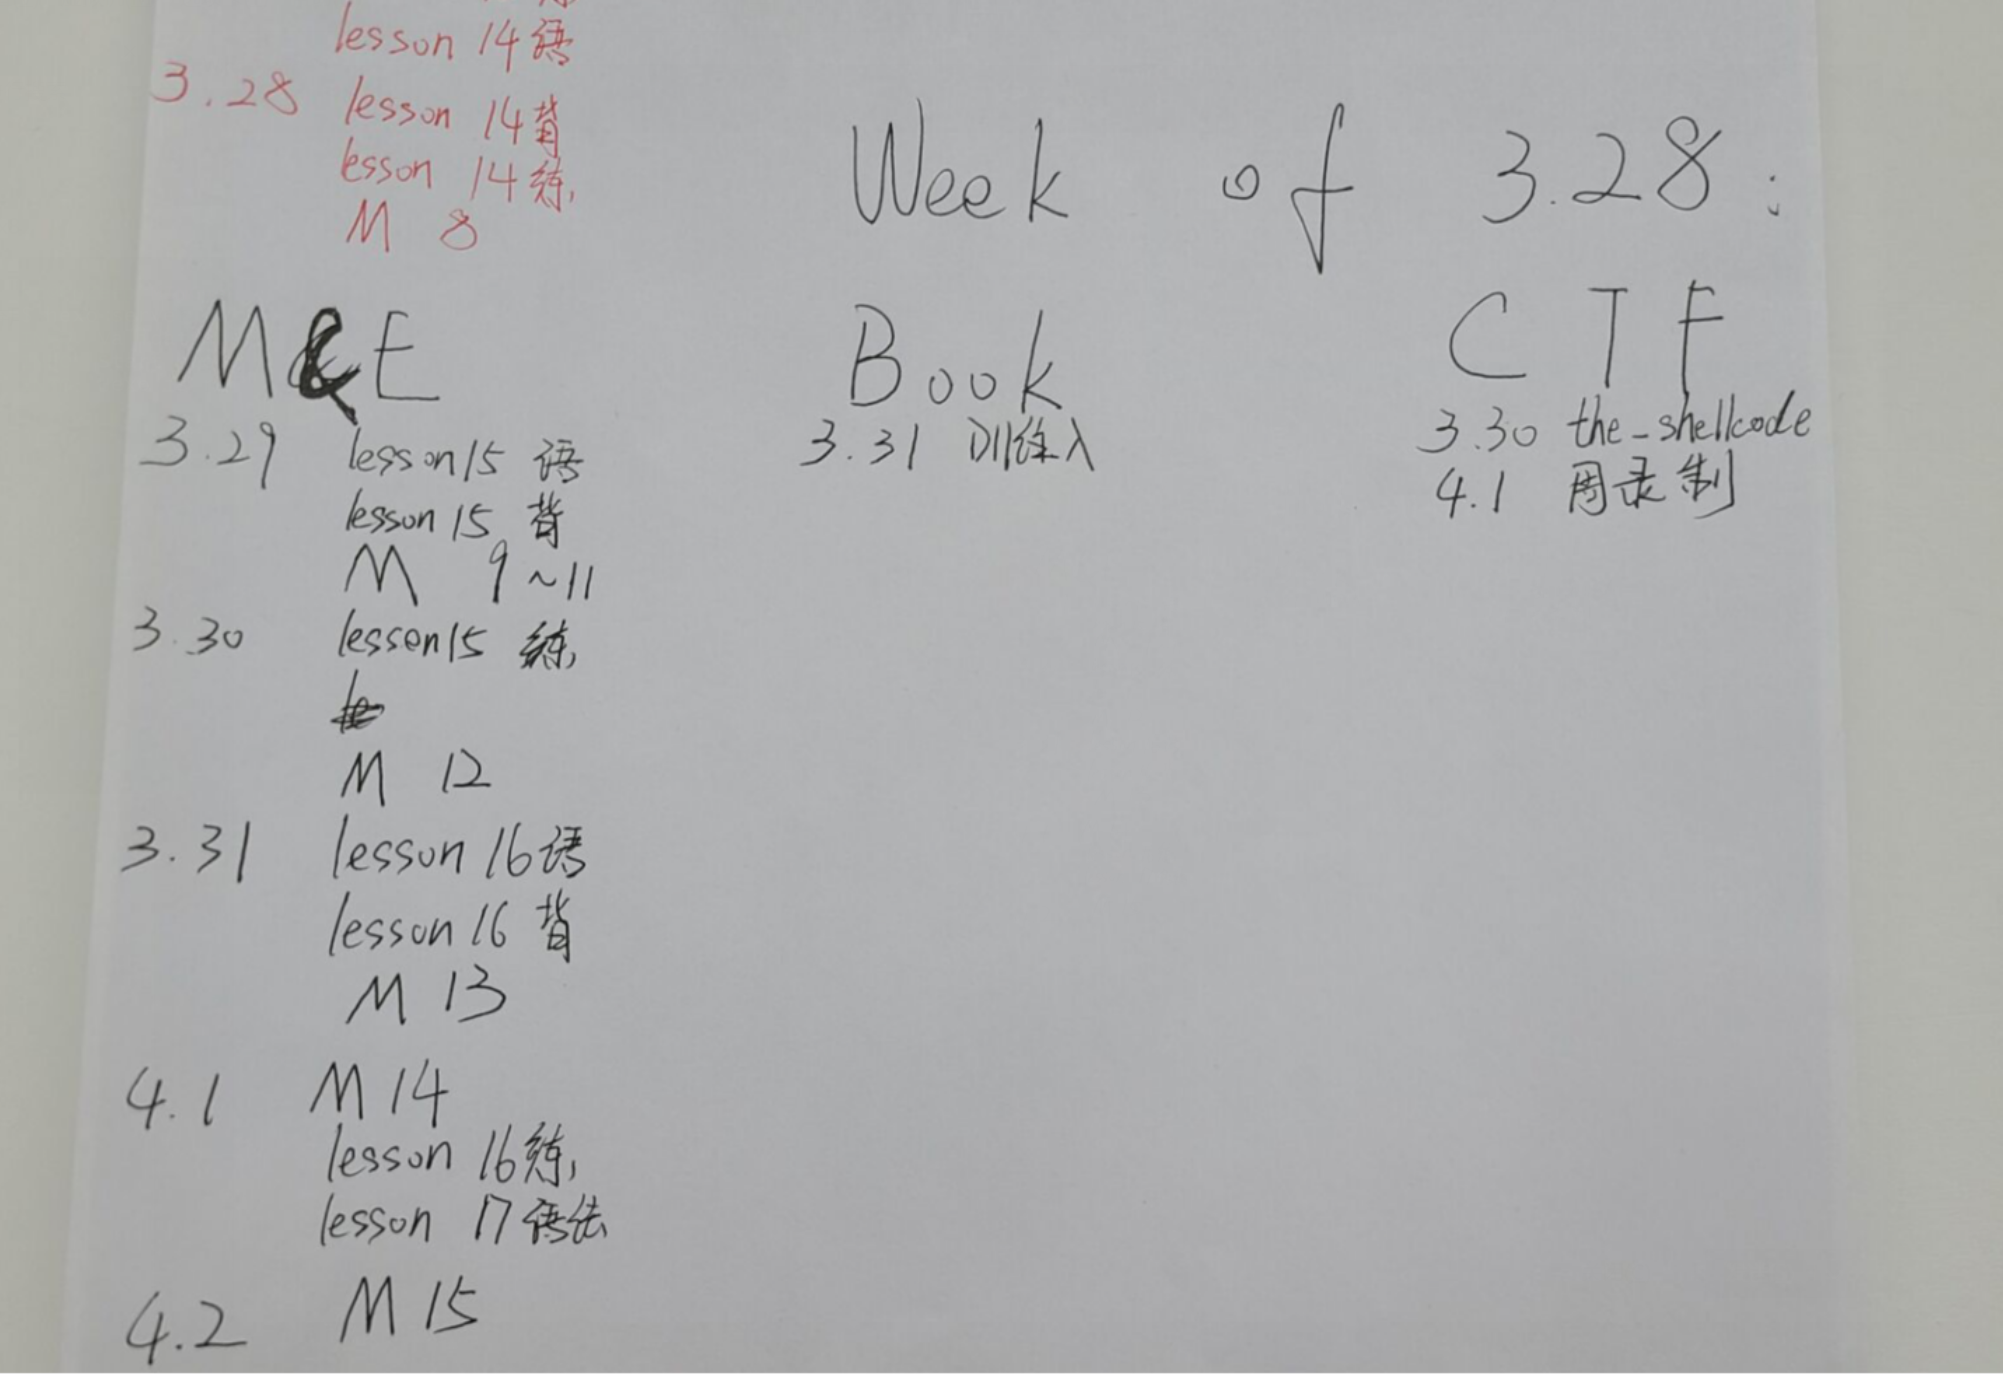 lesson 14 语
3.28 lesson 14 背
lesson 14 练
M 8
Week of 3.28:
M&E
3.29 lesson 15 语
lesson 15 背
M 9~11
3.30 lesson 15 练
M 12
3.31 lesson 16 语
lesson 16 背
M 13
4.1 M 14
lesson 16 练
lesson 17 语法
4.2 M 15
Book
3.31 入
CTF
3.30 the_shellcode
4.1 周录制